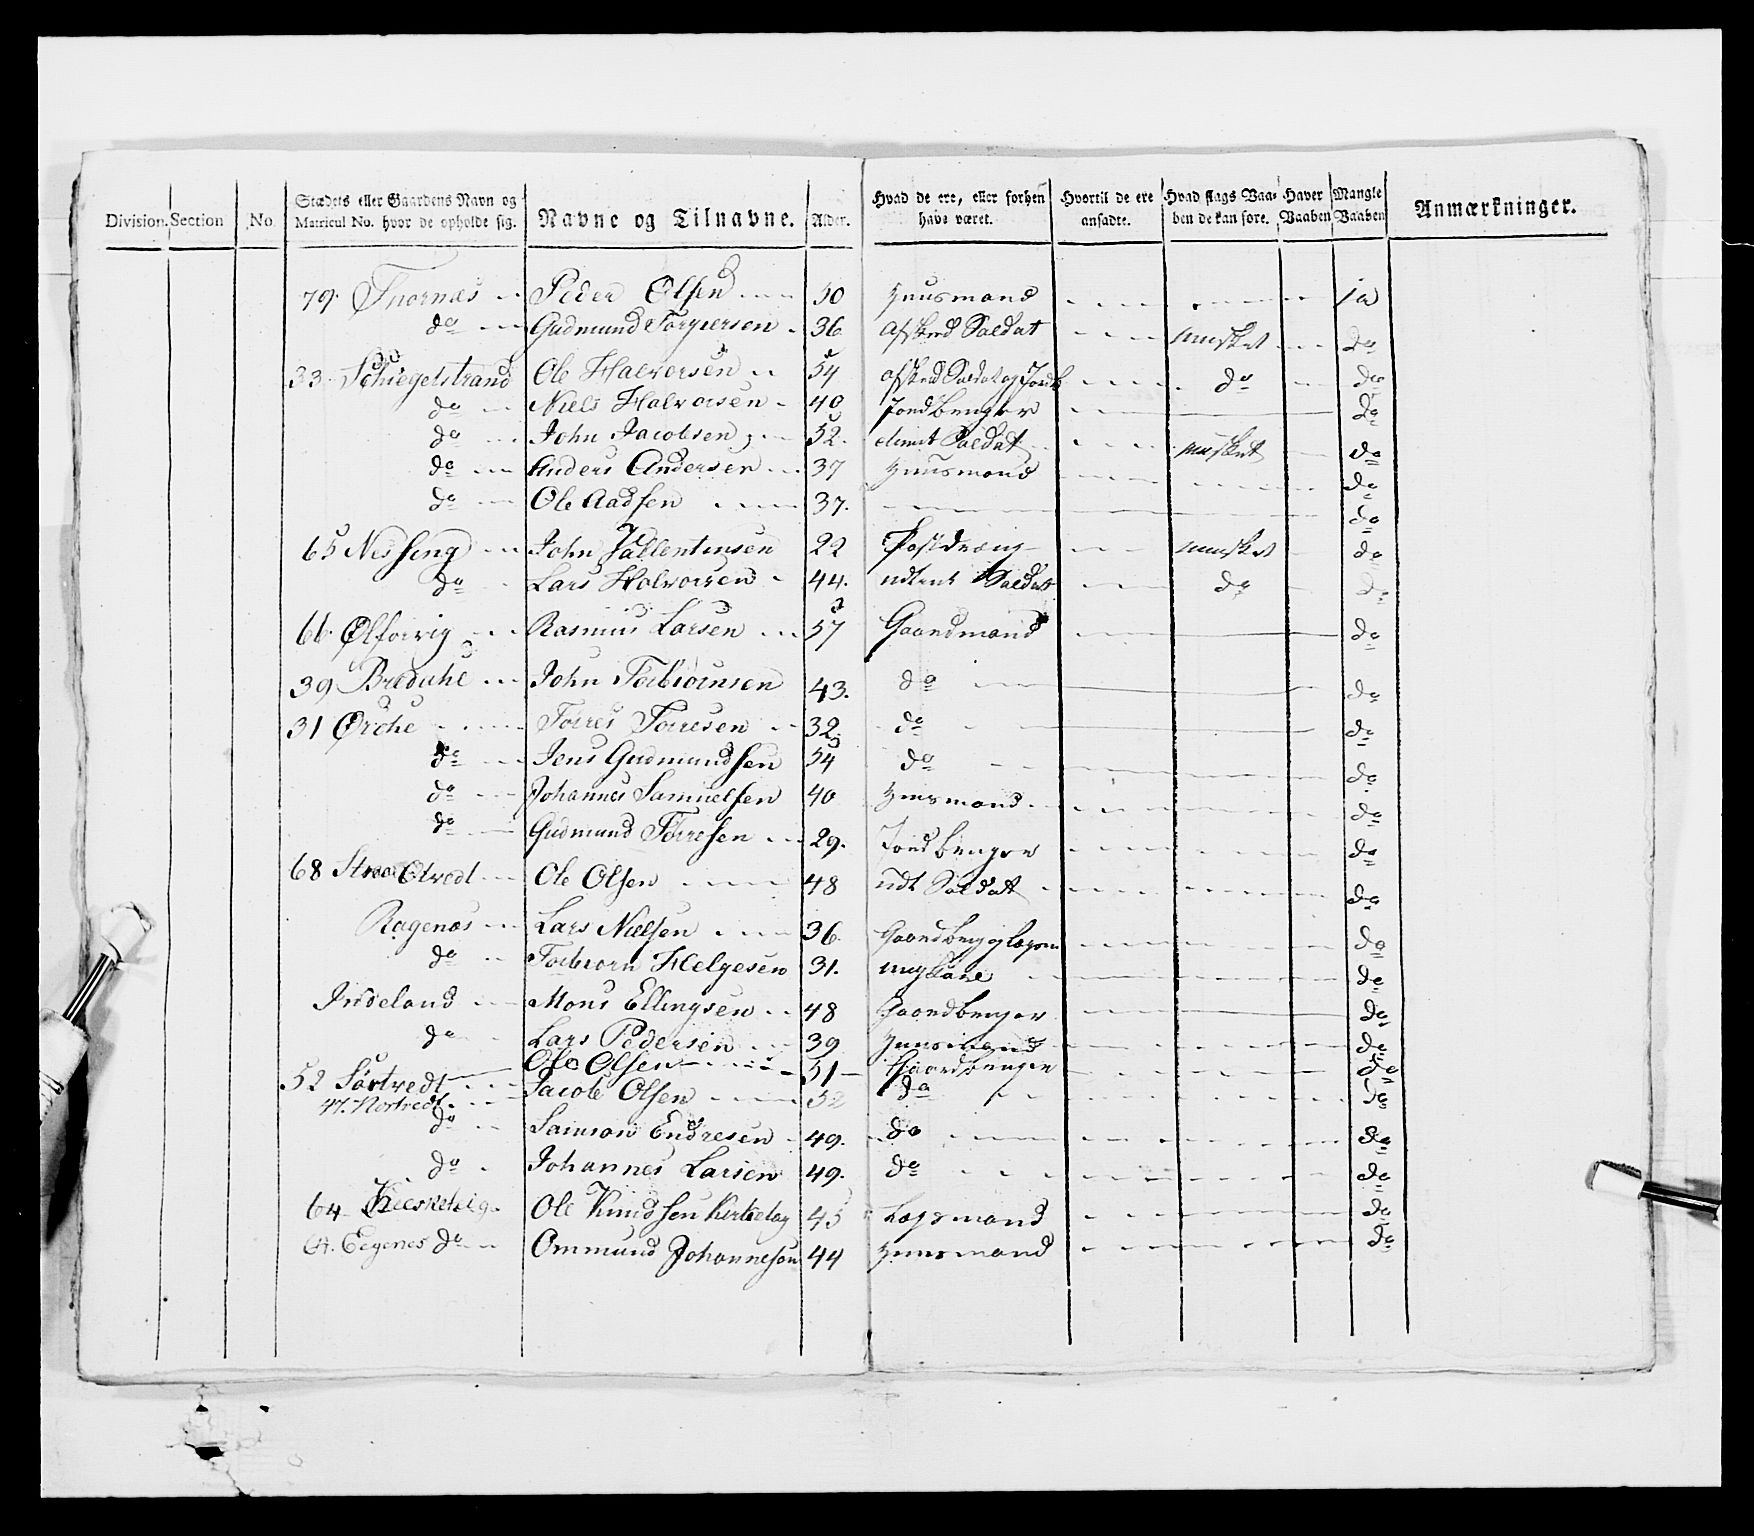 Division. Section No. Stædets eller Gaardens Navn og Matricul No. hvor de opholde sig. Navne og Tilnavne. Alder. Hvad de ere, eller forhen have været. Hvortil de ere ansadte. Hvad slags Vaaben de kan føre. Haver Vaaben Mangle Vaaben Anmærkninger.
79. Thornæs Peder Olsen 50 Huusmand ja
do Gudmund Torgiersen 36 afsked Soldat musket do
33. Schiegelstrand Ole Halvorsen 54 afsked Soldat og do do
do Niels Halvorsen 40 Jordbruger do
do John Jacobsen 52. Soldat musket do
do Anders Andersen 37 Huusmand do
do Ole Aadsen 37. do
65 Nesseng John Vallentinsen 22 Postdreng musket do
do Lars Halvorsen 44. udtient Soldat do do
66. Ølfarvig Rasmus Larsen 57 Gaardmand do
39 Breduhl John Torbiørnsen 43. do do
31 Ørche Torres Torresen 32. do do
do Jens Gudmundsen 54 do do
do Johannes Samuelsen 40 Huusmand do
do Gudmund Torresen 29. Jordbruger do
68 Ole Olsen 48 udt Soldat do
Ragenæs Lars Nielsen 36. do
do Torbiorn Helgesen 31. ungkarl do
Indeland Mons Ellingsen 48 Gaardbruger do
do Lars Pedersen 39 Huusmand do
52 Sørtvedt Ole Olsen 51 Gaardbruger do
47. Nortvedt Jacob Olsen 52 do do
do Samson Endresen 49. do do
do Johannes Larsen 49. do do
64 Ole Knudssen 45 Lagsmand do
Eegenes do Ommund Johannesen 44 Huusmand do